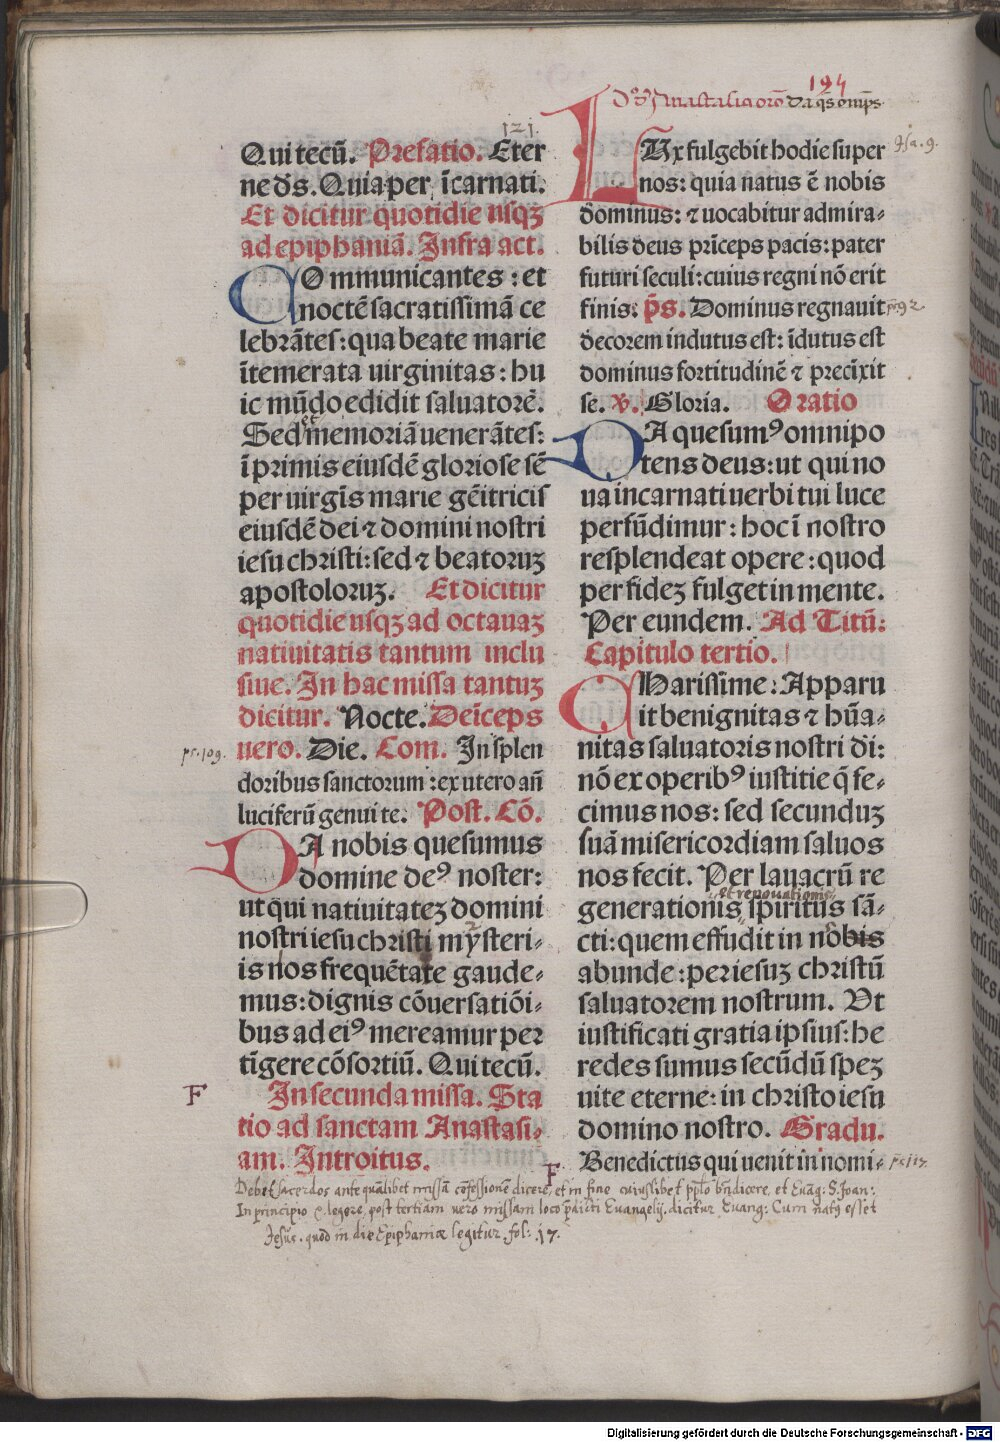 194
121
Qui tecū. Prefatio. Eter
ne ds̄. Quia per īcarnati.
Et dicitur quotidie usqꝫ
ad epiphaniā. Infra act.
COmmunicantes : et
noctē sacratissimā ce
lebrātes : qua beate marie
ītemerata uirginitas : hu
ic mūdo edidit saluatorē.
Sed et memoriā uenerātes :
īprimis eiusdē gloriose sē
per uirgīs marie gēitricis
eiusdē dei ⁊ domini nostri
iesu christi : sed ⁊ beatoruꝫ
apostoloruꝫ. Et dicitur
quotidie usqꝫ ad octauaꝫ
natiuitatis tantum inclu
siue. In hac missa tantuꝫ
dicitur. Nocte. Deīceps
uero. Die. Com. In splen
ps. 109.
doribus sanctorum : ex utero añ
luciferū genui te. Post. Cō.
DA nobis quesumus
domine deꝰ noster :
ut qui natiuitateꝫ domini
nostri iesu christi mysteri-
is nos frequētate gaude-
mus : dignis cōuersatiōi-
bus ad eiꝰ mereamur per
tīgere cōsortiū. Qui tecū.
F In secunda missa. Sta
tio ad sanctam Anastasi-
am. Introitus.
LUx fulgebit hodie super
Isa. 9.
nos : quia natus ē nobis
dominus : ⁊ uocabitur admira-
bilis deus prīceps pacis : pater
futuri seculi : cuius regni nō erit
finis : p̄s. Dominus regnauit
ps. 92.
decorem indutus est : īdutus est
dominus fortitudinē ⁊ precīxit
se. V. Gloria. Oratio
DA quesumꝰ omnipo
tens deus : ut qui no
ua incarnati uerbi tui luce
perfūdimur : hoc ī nostro
resplendeat opere : quod
per fideꝫ fulget in mente.
Per eundem. Ad Titū :
Capitulo tertio.
CHarissime : Apparu
it benignitas ⁊ hūa-
nitas saluatoris nostri di̅ :
nō ex operibꝰ iustitie q̄ fe-
cimus nos : sed secunduꝫ
suā misericordiam saluos
nos fecit. Per lauacrū re
et renouationis
generationis spiritus sā-
cti : quem effudit in nobis
abunde : per iesuꝫ christū
saluatorem nostrum. Vt
iustificati gratia ipsius : he
redes sumus secūdū speꝫ
uite eterne : in christo iesu
domino nostro. Gradu.
F Benedictus qui uenit in nomi-
ps. 117.
Debet sacerdos ante quālibet missā cōfessionē dicere, et in fine cuiuslibet pplo bn̄dicere, et Euāg : S. Joan :
In principio &. legere, post tertiam uero missam loco p̄dicti Euangelij. dicitur Euang : Cum natꝰ esset
Jesus. quod in die Epiphaniæ legitur. fol : 17.
Digitalisierung gefördert durch die Deutsche Forschungsgemeinschaft - DFG